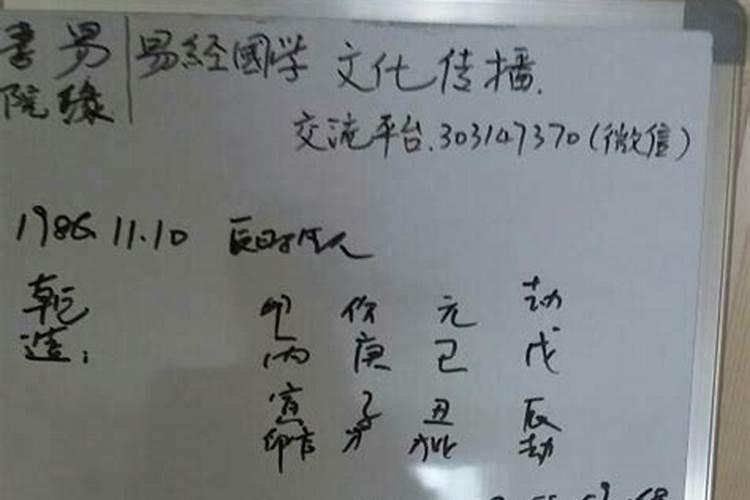 易缘書院
易經國学 文化传播.
交流平台.303147370(微信)
1986.11.10 辰时生人
乾造: 印 伤 元 劫
丙 庚 己 戊
寅 子 丑 辰
印官 才 比 劫